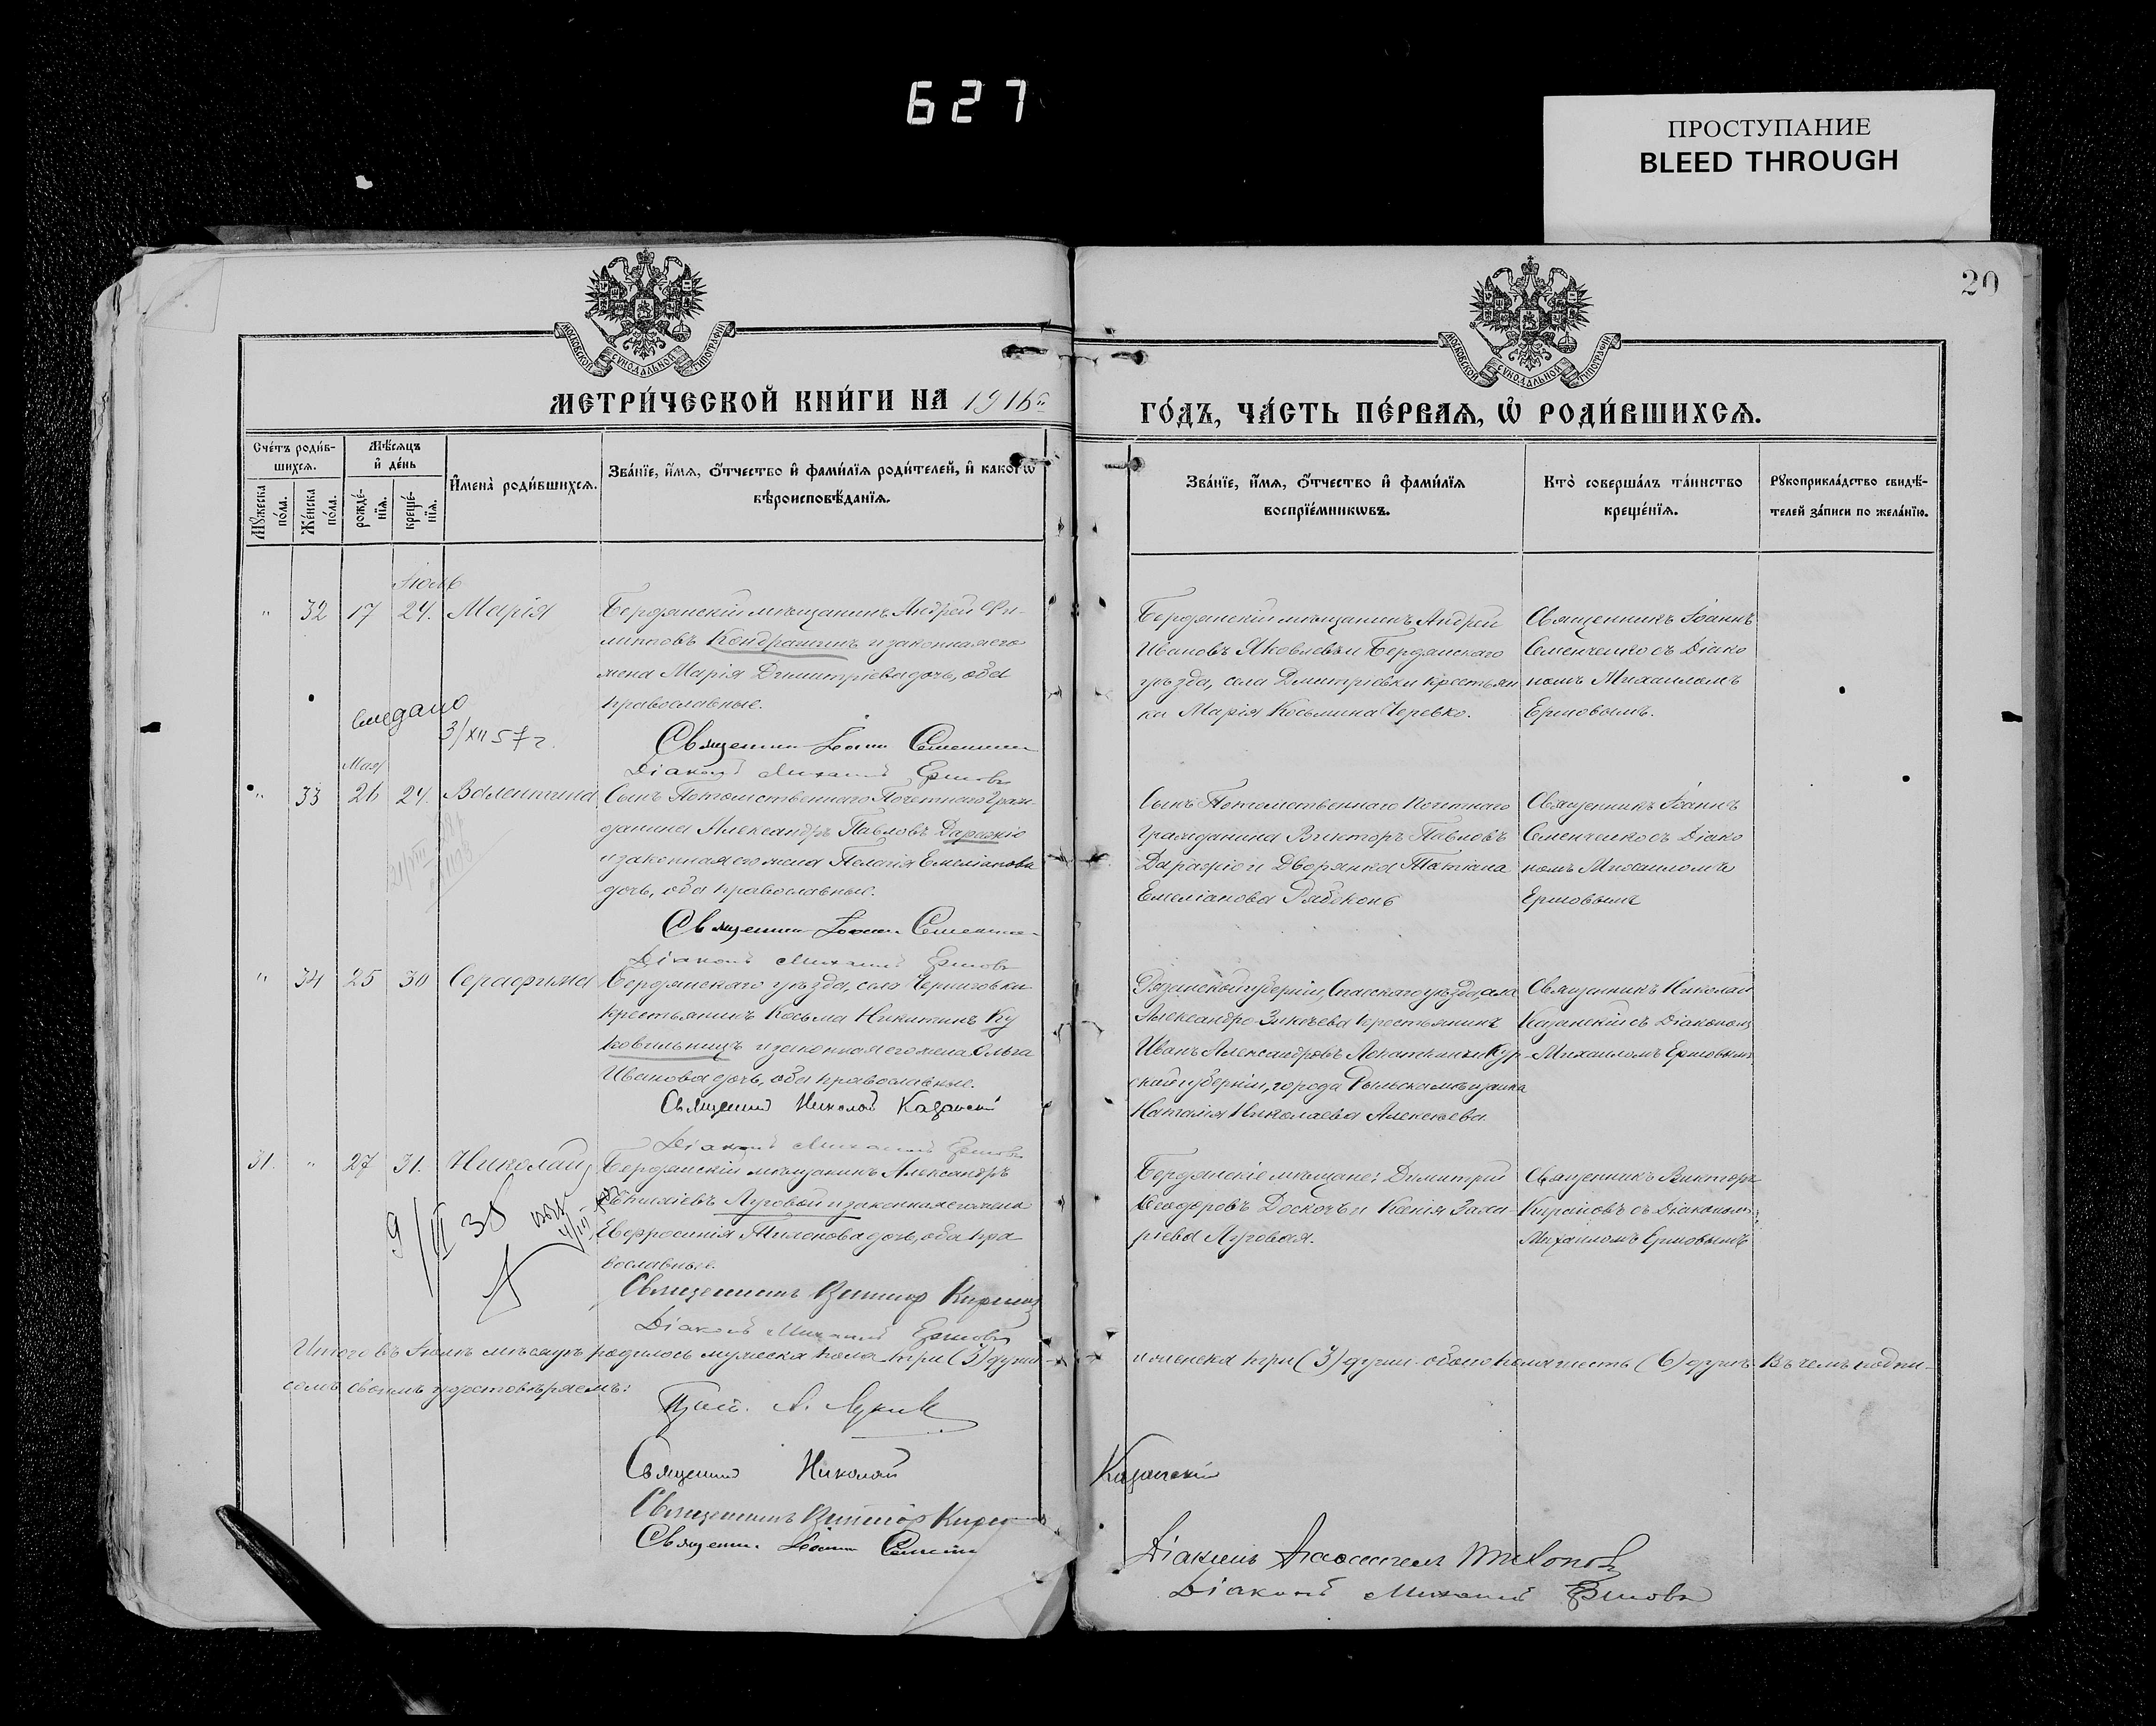 627
ПРОСТУПАНИЕ
BLEED THROUGH
20
МОСКОВСКОЙ СѴНОДАЛЬНОЙ ТИПОГРАФІИ
МОСКОВСКОЙ СѴНОДАЛЬНОЙ ТИПОГРАФІИ
МЕТРИ́ЧЕСКОЙ КНИ́ГИ НА 1916й
ГО́ДЪ, ЧА́СТЬ ПЕ́РВАЯ, Ѽ РОДИ́ВШИХСЯ.
Сче́тъ роди́в-
шихся.
Мѣ́сяцъ
и҆ де́нь
Мꙋ́жеска по́ла.
Же́нска по́ла.
рожде́-нїя.
креще́-нїя.
И҆мена̀ роди́вшихся.
Зва́нїе, и҆́мя, ѻ҆́тчество и҆ фами́лїя роди́телей, и҆ како́гѡ
вѣроисповѣ́данїя.
Зва́нїе, и҆́мя, ѻ҆́тчество и҆ фами́лїя
воспрїе́мникѡвъ.
Кто̀ соверша́лъ та́инство
креще́нїя.
Рꙋкоприкла́дство свидѣ́-
телей за́писи по жела́нїю.
Іюль
" 32 17 24. Марія
Бердянскій мѣщанинъ Андрей Фи-
липповъ Кондрашинъ и законная его
жена Марія Димитріева дочь, оба
православные.
3/XII 57 г.
Священникъ Іоаннъ Семенченко
Діаконъ Михаилъ Ершовъ
Бердянскій мѣщанинъ Андрей
Ивановъ Яковлевъ и Бердянскаго
уѣзда, села Дмитріевки крестьян
ка Марія Косьмина Черевко.
Священникъ Іоаннъ
Семенченко съ Діако
номъ Михаиломъ
Ершовымъ.
Мая
" 33 26 24. Валентина
Сынъ Потомственнаго Почетнаго Граж-
данина Александръ Павловъ Даражіо
и законная его жена Пелагія Емеліанова
дочь, оба православные.
Священникъ Іоаннъ Семенченко
Діаконъ Михаилъ Ершовъ
Сынъ Потомственнаго Почетнаго
Гражданина Викторъ Павловъ
Даражіо и Дворянка Татіана
Емеліанова Рябоконь
Священникъ Іоаннъ
Семенченко съ Діако
номъ Михаиломъ
Ершовымъ
" 34 25 30 Серафима
Бердянскаго уѣзда, села Черниговки
крестьянинъ Косьма Никитинъ
и законная его жена Ольга
Иванова дочь, оба православные.
Священникъ Николай Казанскій
Діаконъ Михаилъ Ершовъ
Рязанской губерніи, Спасскаго уѣзда, села
крестьянинъ
Иванъ Александровъ Лопаткинъ и Кур-
ской губерніи, города Рыльска мѣщанка
Наталія Николаева Алексѣева.
Священникъ Николай
Казанскій съ Діакономъ
Михаиломъ Ершовымъ
31. " 27 31. Николай
Бердянскій мѣщанинъ Александръ
Луговой и законная его жена
Евфросинія дочь, оба пра
вославные.
9/VI 38
Священникъ Викторъ Кирановъ
Діаконъ Михаилъ Ершовъ
Бердянскіе мѣщане: Димитрій
Ѳеодоровъ Доскочъ и Ксенія Заха-
ріева Луговая.
Священникъ Викторъ
Кирановъ съ Діакономъ
Михаиломъ Ершовымъ
Итого въ Іюлѣ мѣсяцѣ родилось мужеска пола три (3) души
и женска три (3) души обоего пола шесть (6) душъ. Въ чемъ подпи-
сомъ своимъ удостовѣряемъ:
Священникъ Николай Казанскій
Священникъ Викторъ Кирановъ
Священникъ Іоаннъ Семенченко
Діаконъ Тихоновъ
Діаконъ Михаилъ Ершовъ